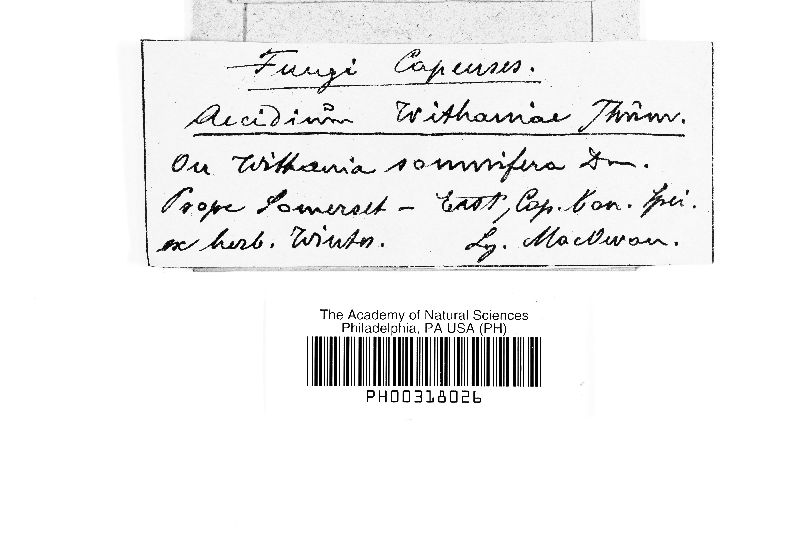 Fungi Capenses.
Aecidium Withaniae Thüm.
On Withania somnifera Dn.
Prope Somerset – East, Cap. bon. spei.
ex herb. Winter. Lg. MacOwan.
The Academy of Natural Sciences
Philadelphia, PA USA (PH)
PH00318026